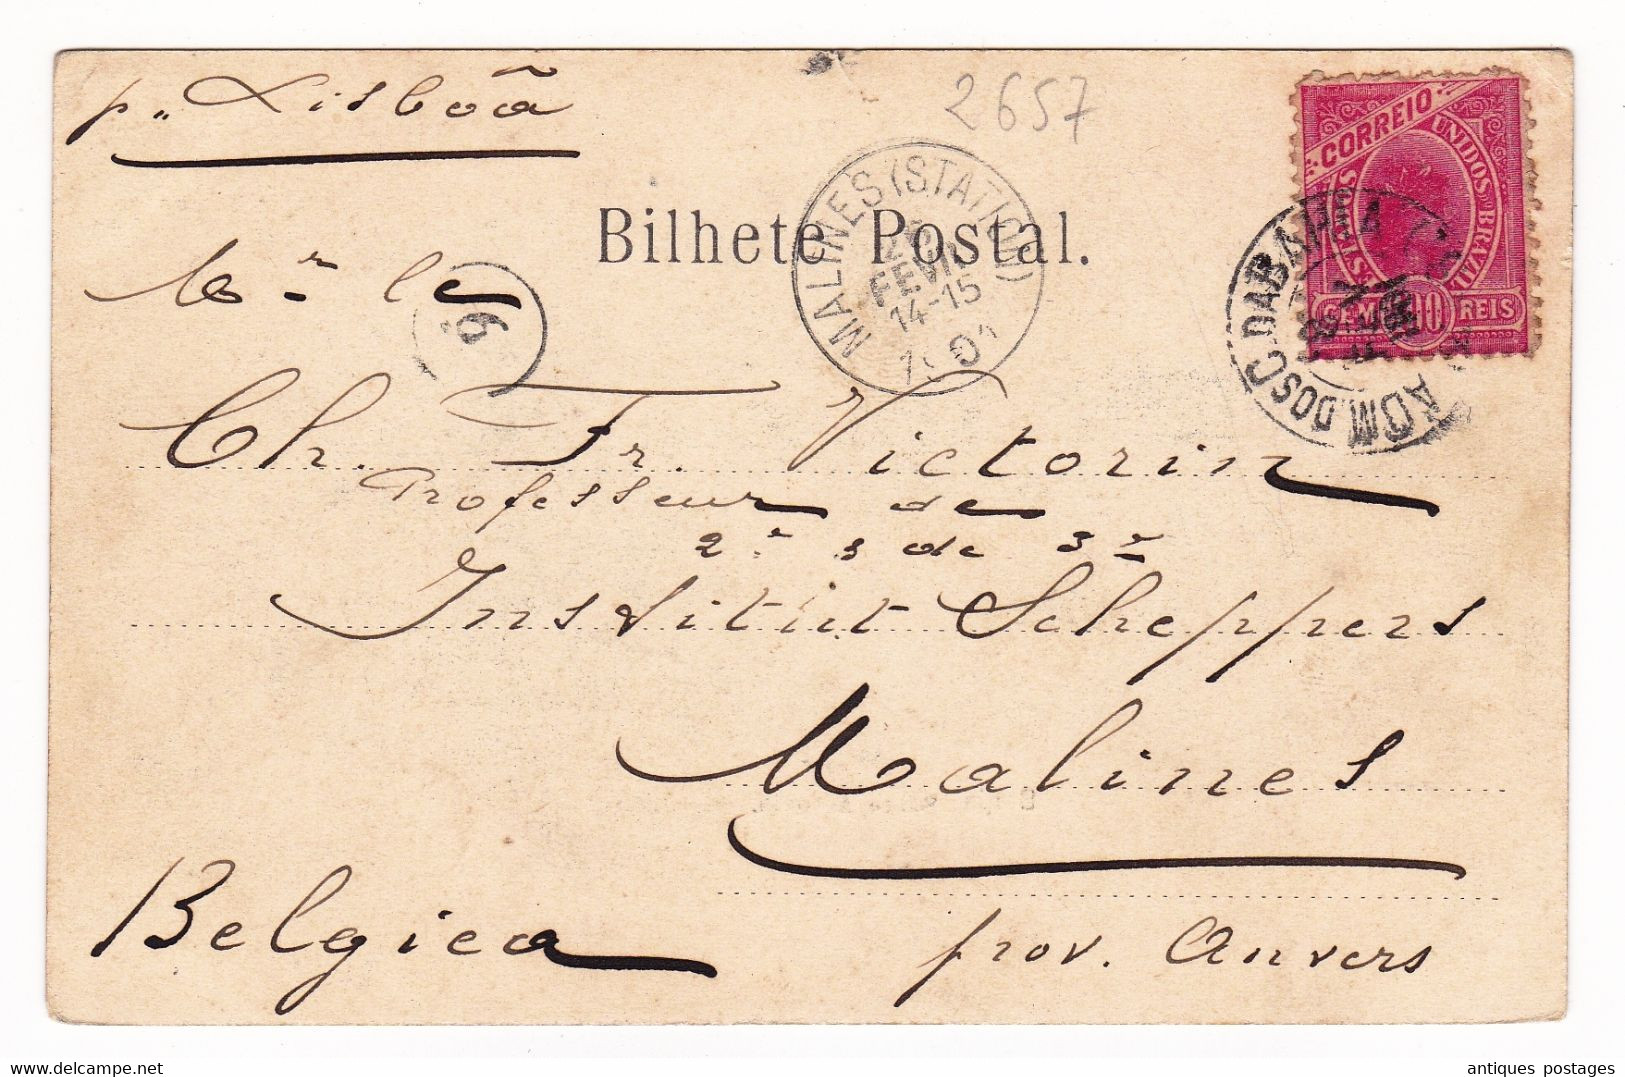 p. Lisboã
2657
CORREIO
E. UNIDOS DO BRAZIL
CEM 100 REIS
Bilhete Postal.
MALINES (STATION)
FEVR
14-15
ADM. DOS C. DA BAHIA
Mr le
6
Ch. Fr. Victorin
Professeur de
2e & de 3e
Institut Scheppers
Malines
Belgica
prov. Anvers
delcampe.net
antiques postages